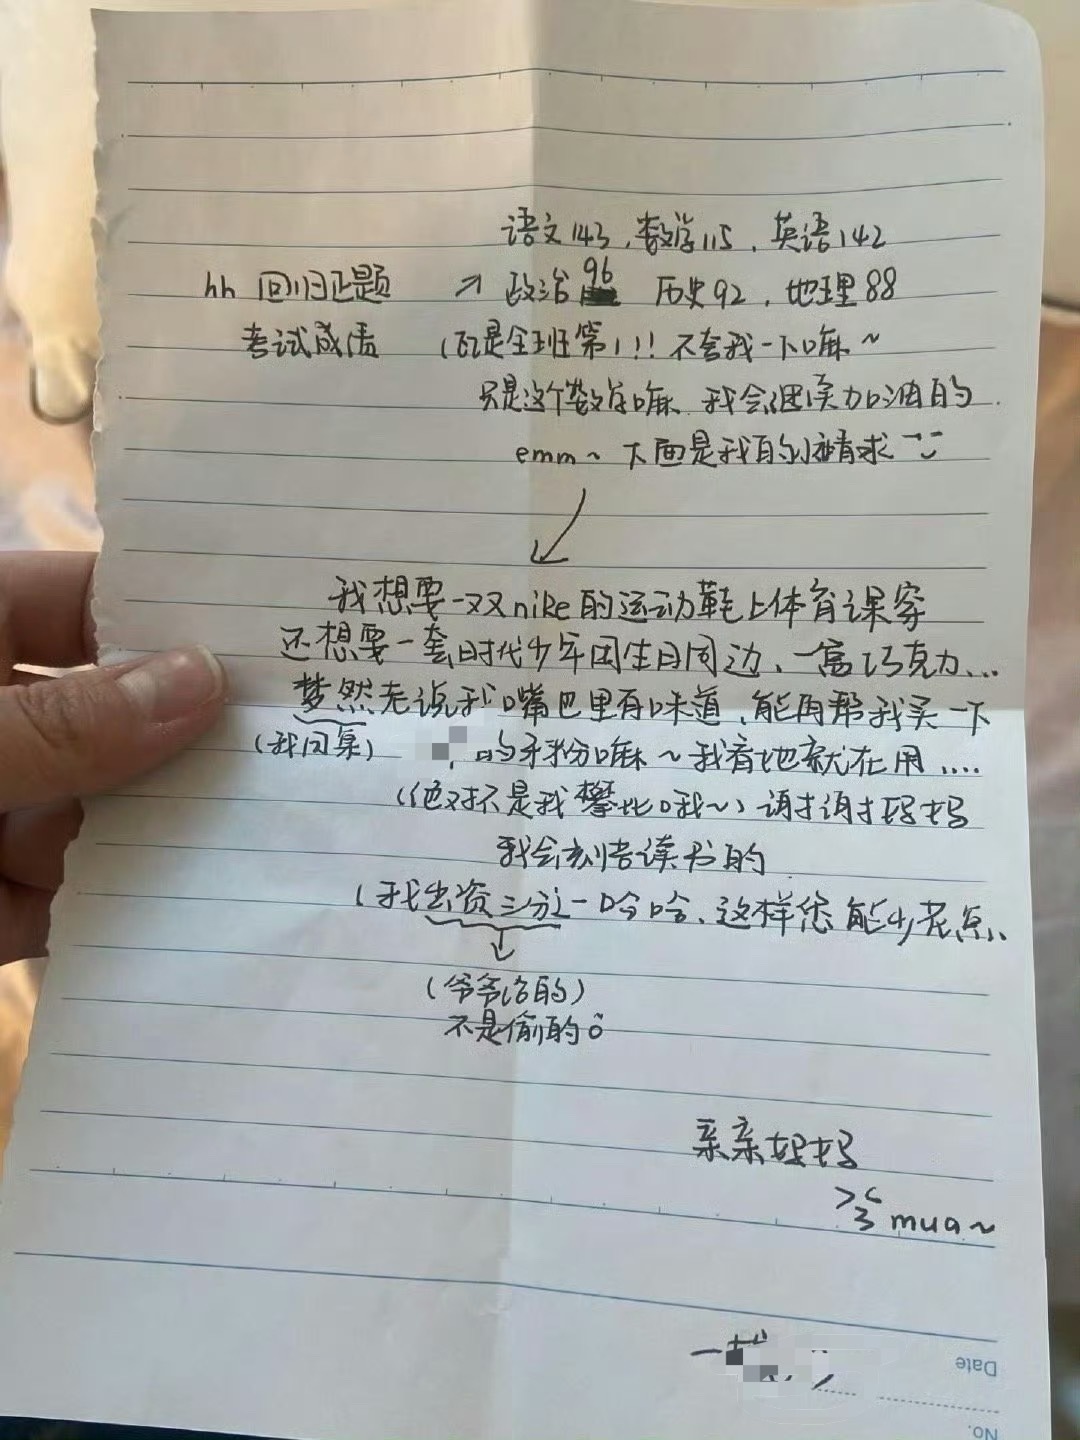 语文143,数学115,英语142
hh 回归正题 ↗ 政治96 历史92,地理88
考试成绩 (瓦是全班第1!!不夸我一下嘛~
只是这个数学嘛 我会继续加油的
emm~ 下面是我的小请求
我想要一双nike的运动鞋上体育课穿
还想要一套时代少年团生日周边、一盒巧克力...
梦然老说我嘴巴里有味道,能再帮我买一下
(我同桌) 的牙粉嘛~我看她就在用....
(绝对不是我攀比哦~)谢谢妈妈
我会刻苦读书的
(我出资三分之一哈哈、这样您能少花点..
(爷爷给的)
不是偷的ö
亲亲妈妈
>3< mua~
Date
No.